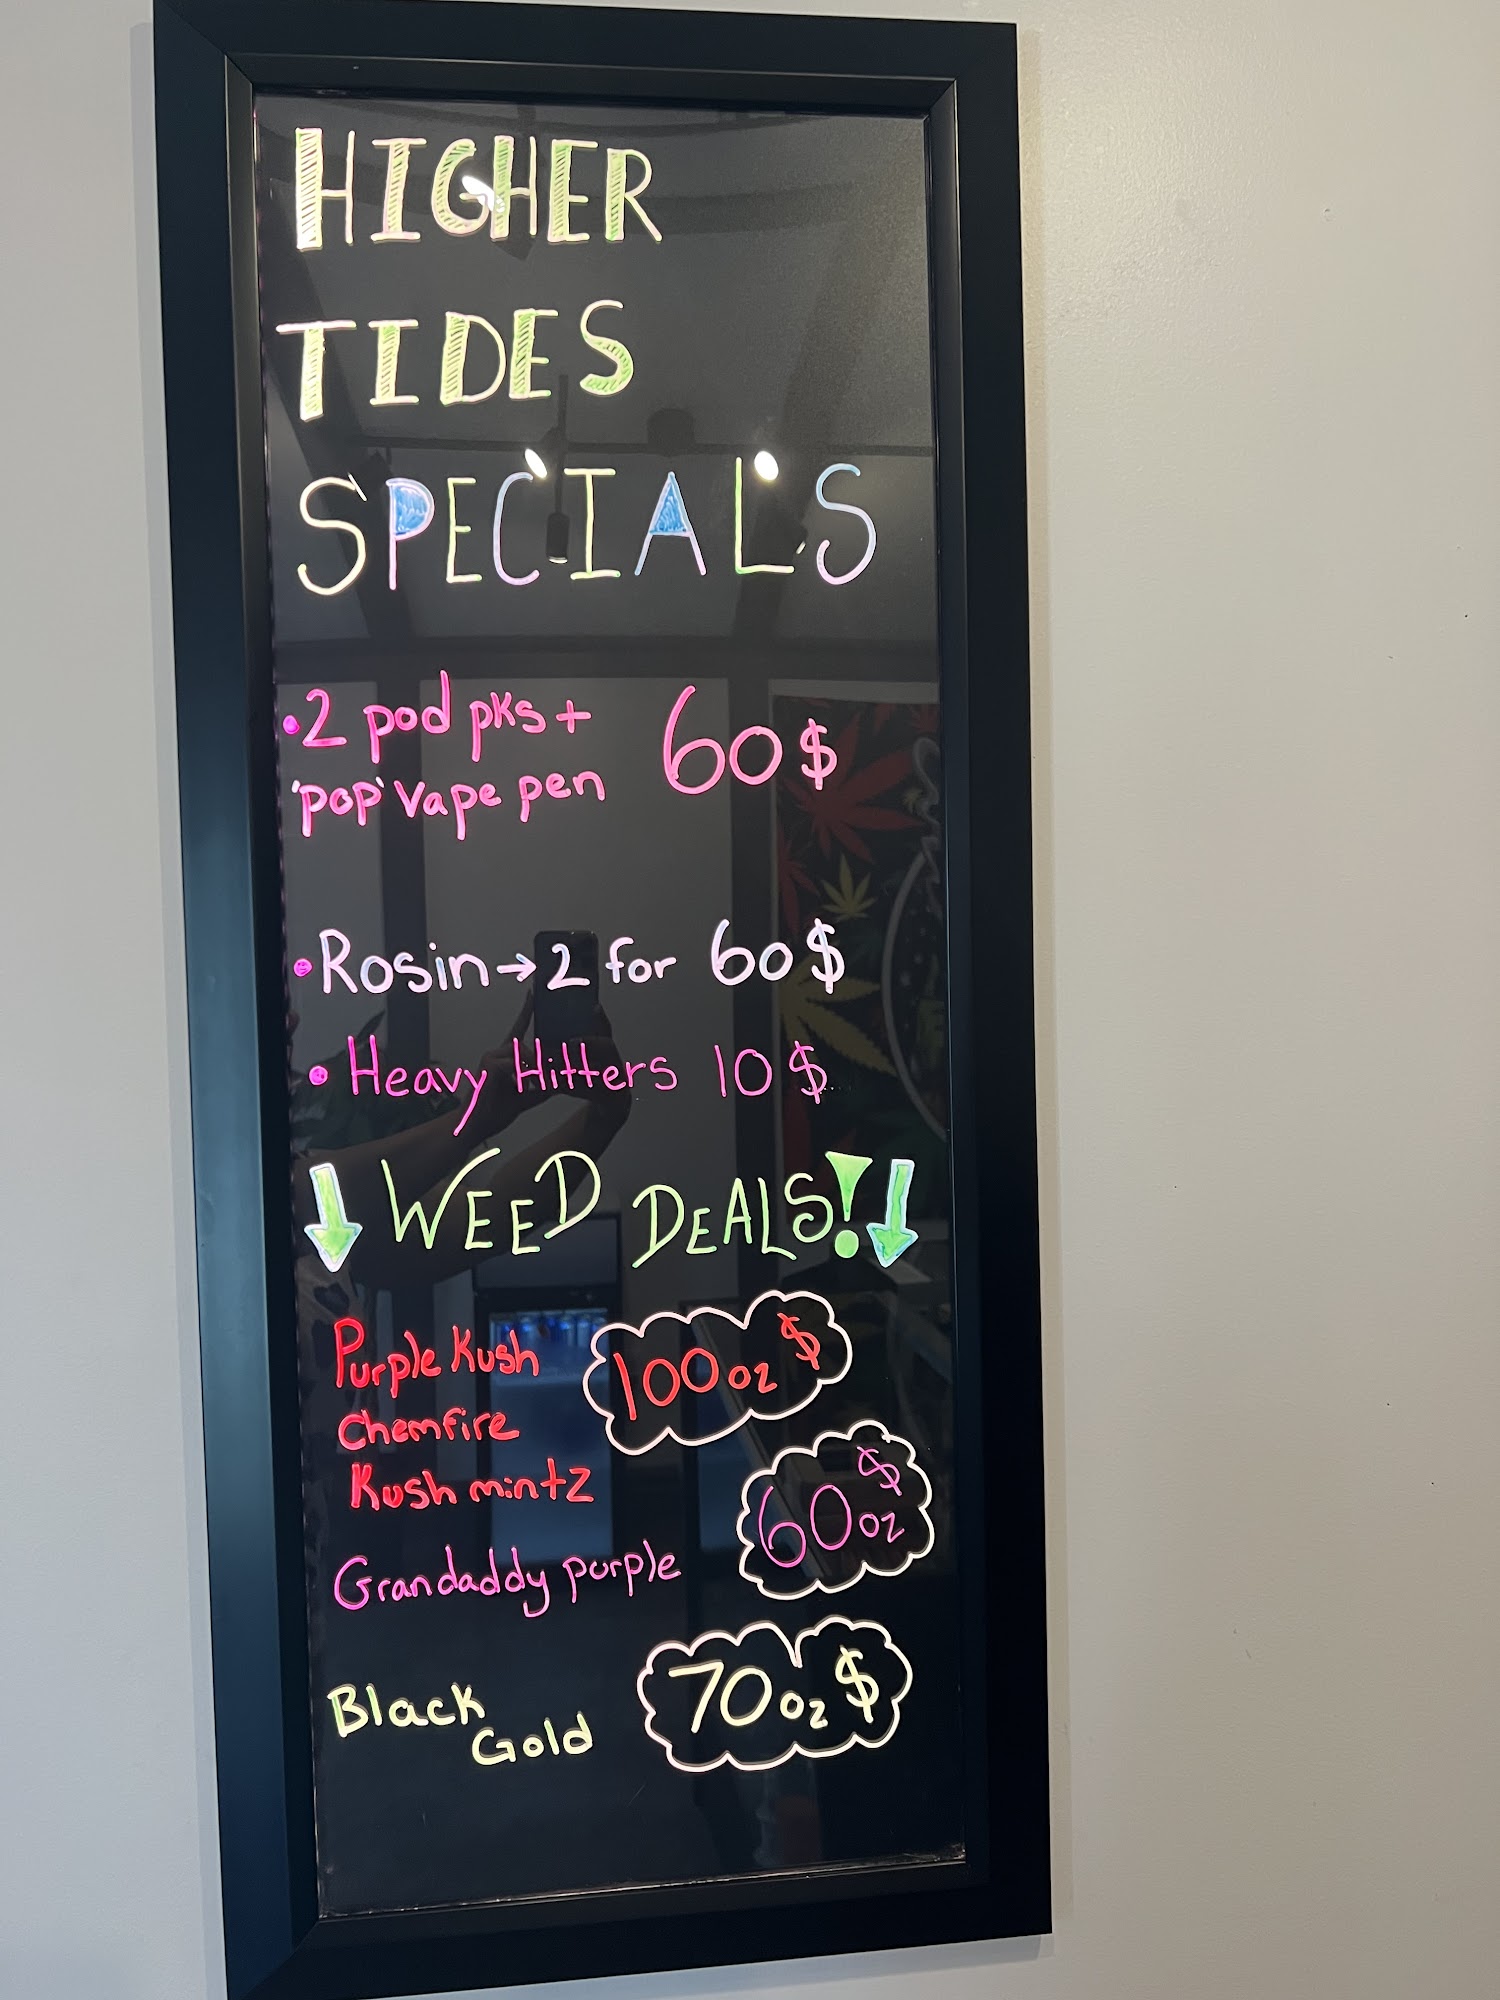 HIGHER
TIDES
SPECIALS
• 2 pod pks + 60$
'pop' vape pen
• Rosin → 2 for 60$
• Heavy Hitters 10$
↓ WEED DEALS! ↓
Purple Kush 100oz $
Chemfire
Kush mintz
Grandaddy purple 60oz $
Black Gold 70oz $